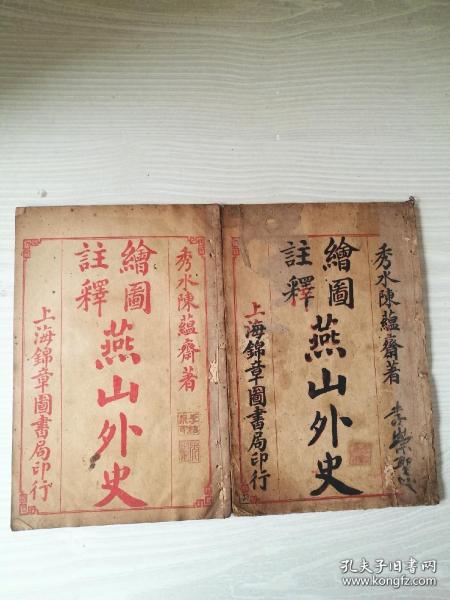 秀水陳蘊齋著
繪圖
註釋
燕山外史
上海錦章圖書局印行
秀水陳蘊齋著
繪圖
註釋
燕山外史
上海錦章圖書局印行
孔夫子旧书网
www.kongfz.com